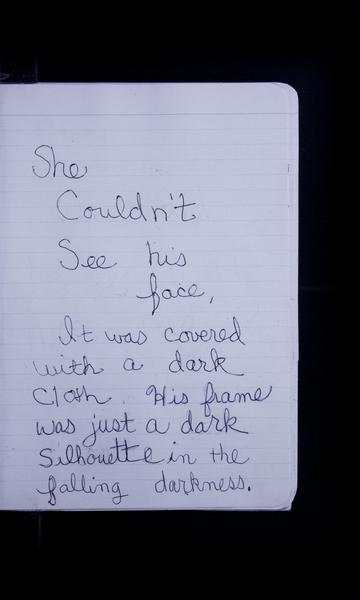 She
Couldn't
See his
face,
It was covered
with a dark
Cloth. His frame
was just a dark
Silhouette in the
falling darkness.